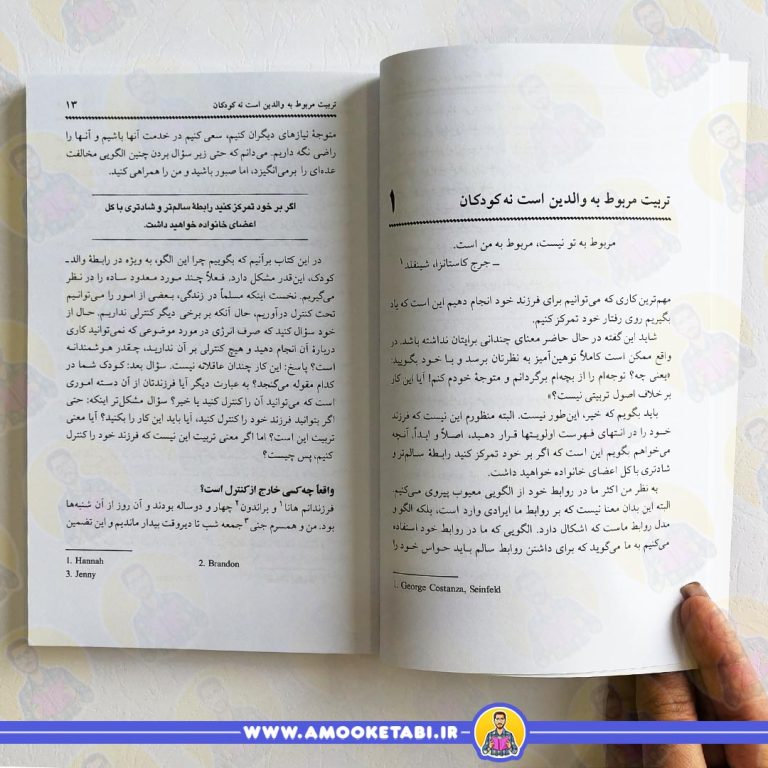 تربیت مربوط به والدین است نه کودکان ۱
مربوط به تو نیست، مربوط به من است.
ـ جرج کاستانزا، شینفلد۱
مهم‌ترین کاری که می‌توانیم برای فرزند خود انجام دهیم این است که یاد
بگیریم روی رفتار خود تمرکز کنیم.
شاید این گفته در حال حاضر معنای چندانی برایتان نداشته باشد. در
واقع ممکن است کاملاً توهین‌آمیز به نظرتان برسد و با خود بگویید:
«یعنی چه؟ توجه‌ام را از بچه‌ام برگردانم و متوجهٔ خودم کنم! آیا این کار
بر خلاف اصول تربیتی نیست؟»
باید بگویم که خیر، این‌طور نیست. البته منظورم این نیست که فرزند
خود را در انتهای فهرست اولویتها قرار دهید، اصلاً و ابداً. آنچه
می‌خواهم بگویم این است که اگر بر خود تمرکز کنید رابطهٔ سالم‌تر و
شادتری با کل اعضای خانواده خواهید داشت.
به نظر من اکثر ما در روابط خود از الگویی معیوب پیروی می‌کنیم.
البته این بدان معنا نیست که بر روابط ما ایرادی وارد است، بلکه الگو و
مدل روابط ماست که اشکال دارد. الگویی که ما در روابط خود استفاده
می‌کنیم به ما می‌گوید که برای داشتن روابط سالم باید حواس خود را
1. George Costanza, Seinfeld
تربیت مربوط به والدین است نه کودکان ۱۳
متوجهٔ نیازهای دیگران کنیم، سعی کنیم در خدمت آنها باشیم و آنها را
راضی نگه داریم. می‌دانم که حتی زیر سؤال بردن چنین الگویی مخالفت
عده‌ای را برمی‌انگیزد، اما صبور باشید و من را همراهی کنید.
اگر بر خود تمرکز کنید رابطهٔ سالم‌تر و شادتری با کل
اعضای خانواده خواهید داشت.
در این کتاب برآنیم که بگوییم چرا این الگو، به ویژه در رابطهٔ والد ـ
کودک، این‌قدر مشکل دارد. فعلاً چند مورد معدود ساده را در نظر
می‌گیریم. نخست اینکه مسلماً در زندگی، بعضی از امور را می‌توانیم
تحت کنترل درآوریم، حال آنکه بر برخی دیگر کنترلی نداریم. حال از
خود سؤال کنید که صرف انرژی در مورد موضوعی که نمی‌توانید کاری
دربارهٔ آن انجام دهید و هیچ کنترلی بر آن ندارید، چقدر هوشمندانه
است؟ پاسخ: این کار چندان عاقلانه نیست. سؤال بعد: کودک شما در
کدام مقوله می‌گنجد؟ به عبارت دیگر آیا فرزندتان از آن دسته اموری
است که می‌توانید آن را کنترل کنید یا خیر؟ سؤال مشکل‌تر اینکه: حتی
اگر بتوانید فرزند خود را کنترل کنید، آیا باید این کار را بکنید؟ آیا معنی
تربیت این است؟ اما اگر معنی تربیت این نیست که فرزند خود را کنترل
کنیم، پس چیست؟
واقعاً چه کسی خارج از کنترل است؟
فرزندانم هانا۱ و براندون۲ چهار و دوساله بودند و آن روز از آن شنبه‌ها
بود. من و همسرم جنی۳ جمعه شب تا دیروقت بیدار ماندیم و این تضمین
1. Hannah 2. Brandon
3. Jenny
WWW.AMOOKETABI.IR